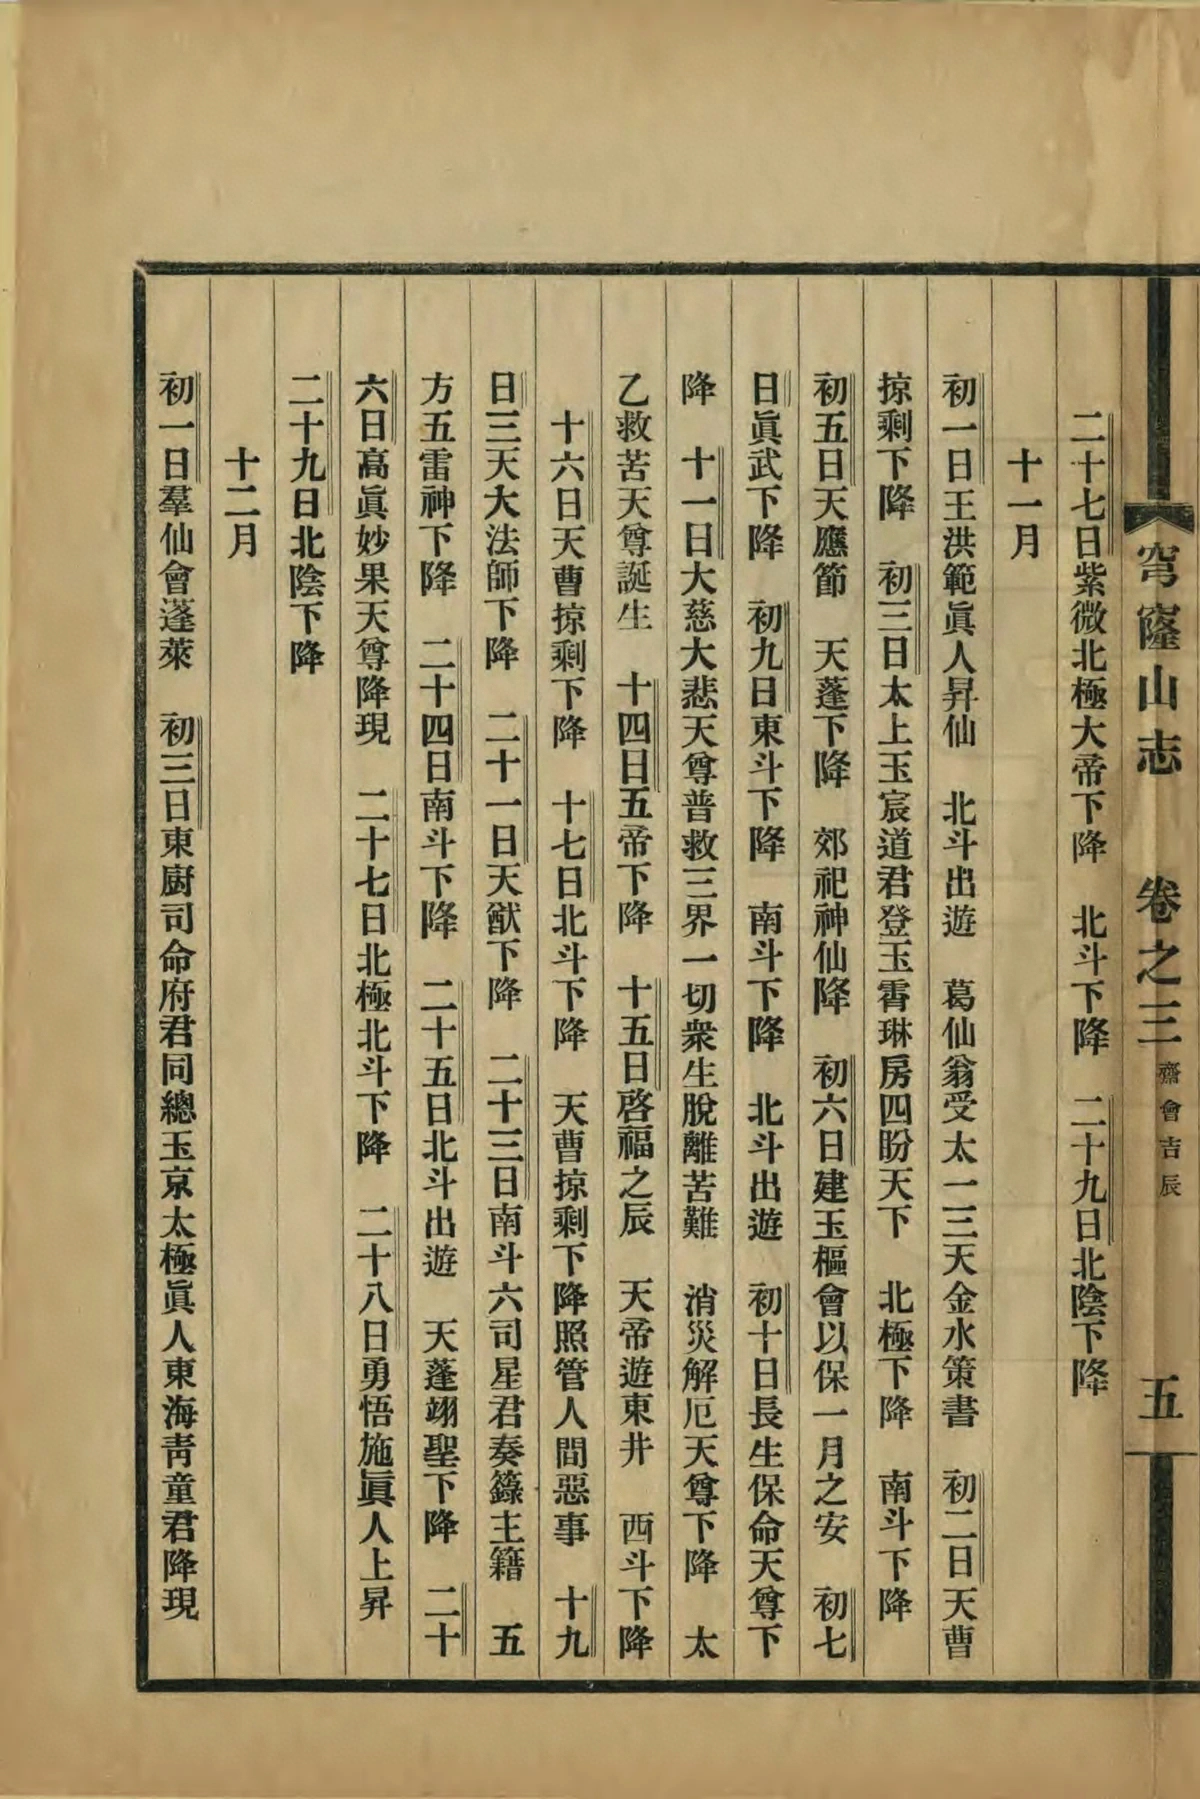 穹窿山志　卷之三　齋會吉辰　五
二十七日紫微北極大帝下降　北斗下降　二十九日北陰下降
十一月
初一日王洪範眞人昇仙　北斗出遊　葛仙翁受太一三天金水策書　初二日天曹
掠剩下降　初三日太上玉宸道君登玉霄琳房四盼天下　北極下降　南斗下降
初五日天應節　天蓬下降　郊祀神仙降　初六日建玉樞會以保一月之安　初七
日眞武下降　初九日東斗下降　南斗下降　北斗出遊　初十日長生保命天尊下
降　十一日大慈大悲天尊普救三界一切衆生脫離苦難　消災解厄天尊下降　太
乙救苦天尊誕生　十四日五帝下降　十五日啓福之辰　天帝遊東井　西斗下降
十六日天曹掠剩下降　十七日北斗下降　天曹掠剩下降照管人間惡事　十九
日三天大法師下降　二十一日天猷下降　二十三日南斗六司星君奏籙主籍　五
方五雷神下降　二十四日南斗下降　二十五日北斗出遊　天蓬翊聖下降　二十
六日高眞妙果天尊降現　二十七日北極北斗下降　二十八日勇悟施眞人上昇
二十九日北陰下降
十二月
初一日羣仙會蓬萊　初三日東厨司命府君同總玉京太極眞人東海靑童君降現